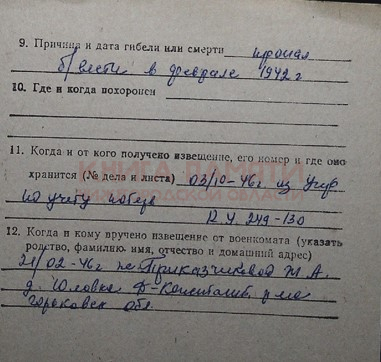 9. Причина и дата гибели или смерти пропал
б/вести в феврале 1942 г
10. Где и когда похоронен
11. Когда и от кого получено извещение, его номер и где оно
хранится (№ дела и листа) 03/10-46г. из Упр
КНИГА ПАМЯТИ
НИЖЕГОРОДСКОЙ ОБЛАСТИ
по учету потерь
249-130
12. Когда и кому вручено извещение от военкомата (указать
родство, фамилию, имя, отчество и домашний адрес)
21/02-46г Приказчиковой М. А.
д. Юловка Д-Константи. р-на
Горьковск обл.